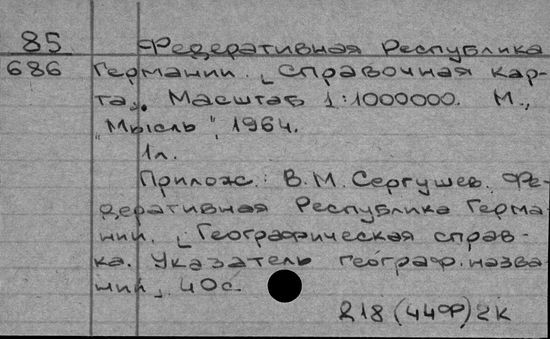 85 Федеративная Республика
686 Германии. [Справочная кар-
та]. Масштаб 1:1000000. М.,
"Мысль", 1964.
1л.
Прилож.: В.М. Сергушев. Фе-
деративная Республика Герма-
нии. [Географическая справ-
ка. Указатель географ. назва
ний]. 40с.
218 (44Ф) 2К